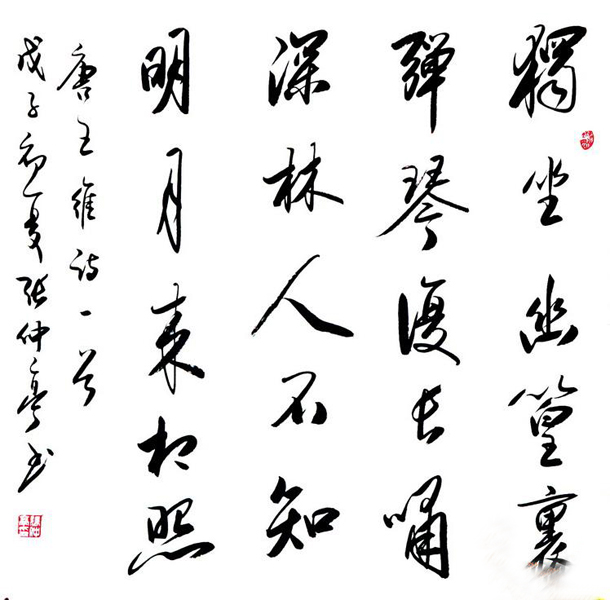 獨坐幽篁裏
彈琴復長嘯
深林人不知
明月来相照
唐王維诗一首
戊子初夏张仲亭书